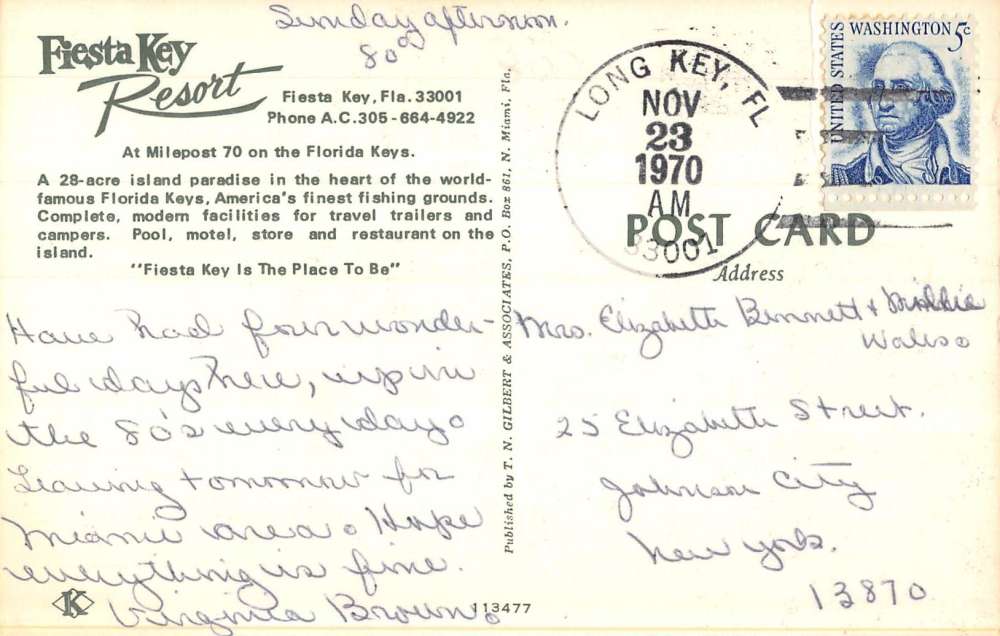 Sunday afternoon.
80°
Fiesta Key
Resort
Fiesta Key, Fla. 33001
Phone A.C. 305 - 664-4922
At Milepost 70 on the Florida Keys.
A 28-acre island paradise in the heart of the world-
famous Florida Keys, America's finest fishing grounds.
Complete, modern facilities for travel trailers and
campers. Pool, motel, store and restaurant on the
island.
"Fiesta Key Is The Place To Be"
Have had four wonder-
ful days here, up in
the 80's every day.
Leaving tomorrow for
Miami area. Hope
everything is fine.
Virginia Brown.
K
113477
Published by T. N. GILBERT & ASSOCIATES, P.O. Box 861, N. Miami, Fla.
LONG KEY, FL
NOV
23
1970
AM
33001
UNITED STATES
WASHINGTON 5c
POST CARD
Address
Mrs. Elizabeth Bennett &
25 Elizabeth Street.
Johnson City
New York.
13870